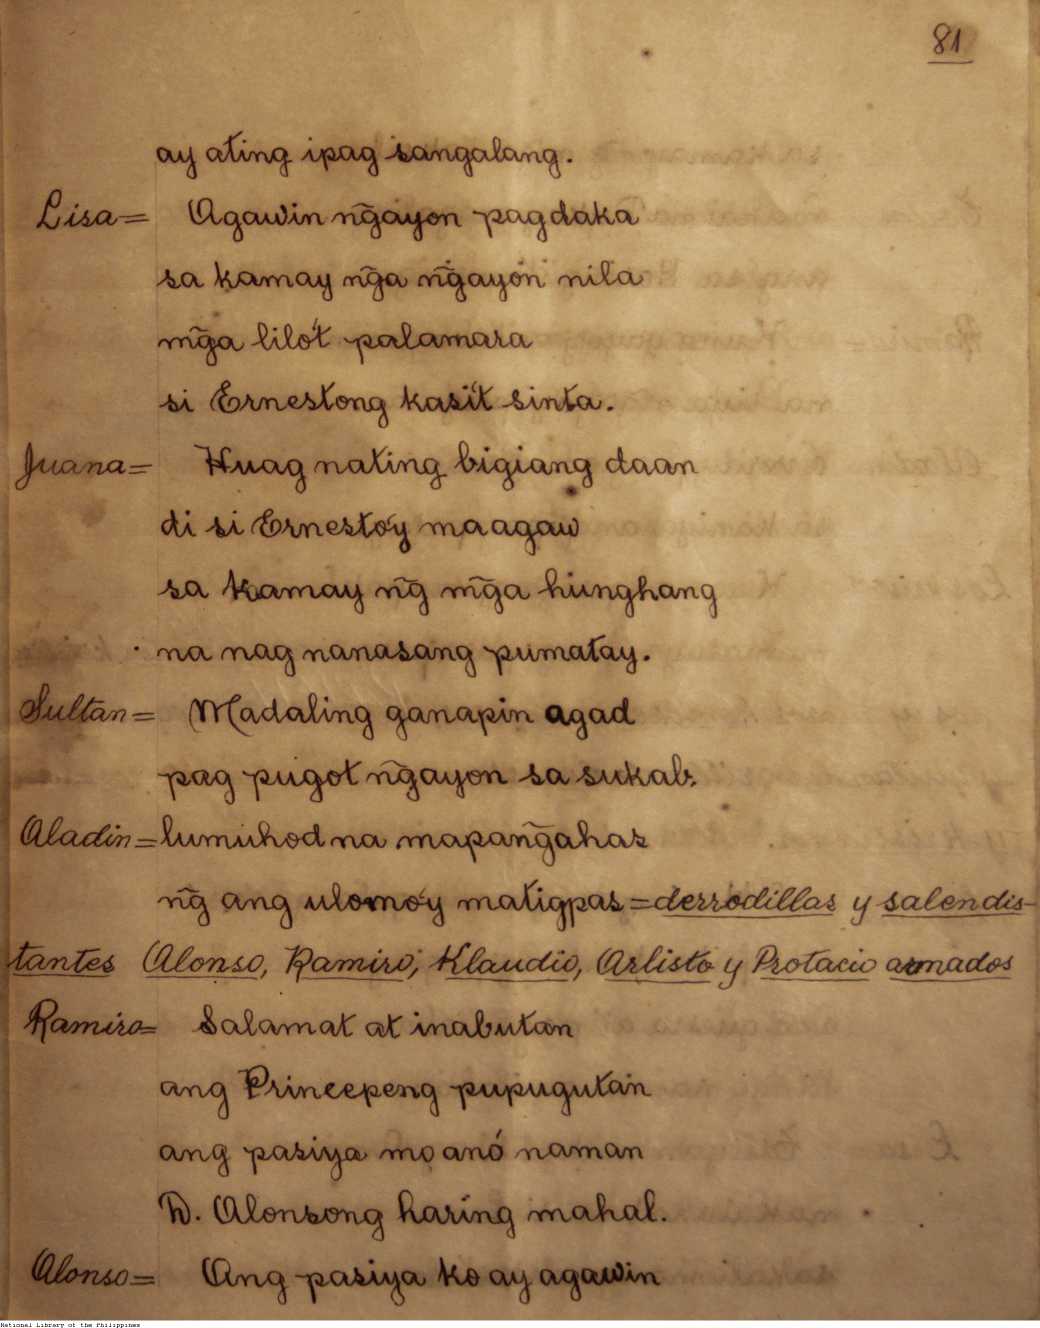 81
ay ating ipag sangalang.
Lisa= Agawin ng̃ayon pagdaka
sa kamay ng̃a ng̃ayón nila
mg̃a lilo't palamara
si Ernestong kasi't sinta.
Juana= Huag nating bigiang daan
di si Ernesto'y maagaw
sa kamay ng̃ mg̃a hunghang
na nag nanasang pumatay.
Sultan= Madaling ganapin agad
pag pugot ng̃ayon sa sukab;
Aladin= lumuhod na mapang̃ahas
ng̃ ang ulomo'y matigpas=derrodillas y salendis-
tantes Alonso, Ramiro, Klaudio, Arlisto y Protacio armados
Ramiro= Salamat at inabutan
ang Princepeng pupugutan
ang pasiya mo anó naman
D. Alonsong haring mahal.
Alonso= Ang pasiya ko ay agawin
National Library of the Philippines